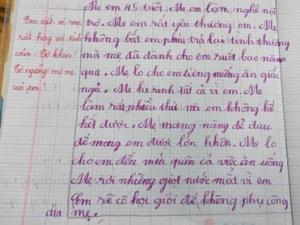 Mẹ em 45 tuổi. Mẹ em làm nghề nội
trợ. Mẹ em rất yêu thương em. Mẹ
không bắt em phải trả lại tình thương
mà mẹ đã dành cho em suốt bao năm
qua. Mẹ lo cho em từng miếng ăn giấc
ngủ. Mẹ hi sinh tất cả vì em. Mẹ
làm rất nhiều thứ mà em không kể
hết được. Mẹ mang nặng đẻ đau
để mong em được lớn khôn. Mẹ lo
cho em đến mức quên cả việc ăn uống
Mẹ rơi những giọt nước mắt vì em
Em sẽ cố học giỏi để không phụ công
mẹ.
Em viết về mẹ
rất hay và tình
cảm. Cô khen!
của em
của